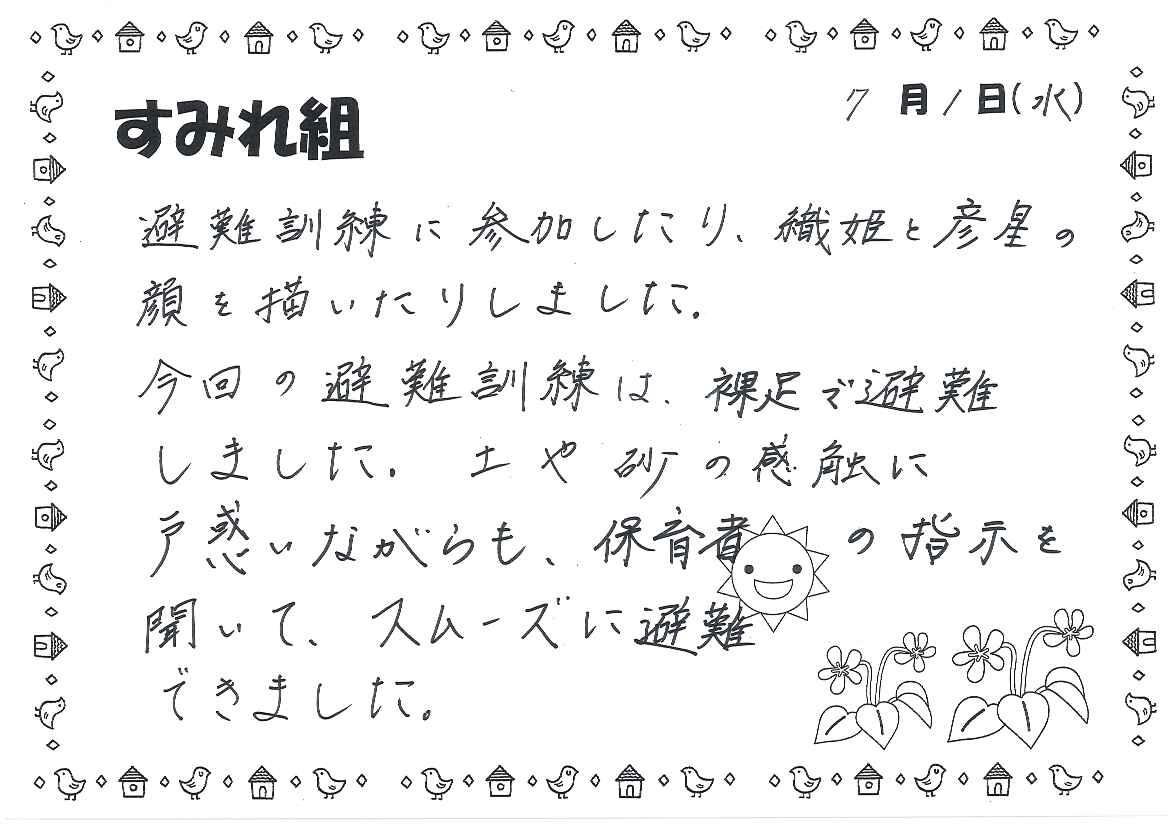 すみれ組
7月1日(水)
避難訓練に参加したり、織姫と彦星の
顔を描いたりしました。
今回の避難訓練は、裸足で避難
しました。土や砂の感触に
戸惑いながらも、保育者の指示を
聞いて、スムーズに避難
できました。